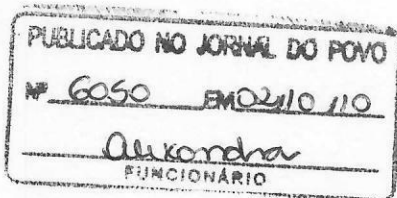 PUBLICADO NO JORNAL DO POVO
Nº 6050 EM 02/10/10
Alexandra
FUNCIONÁRIO